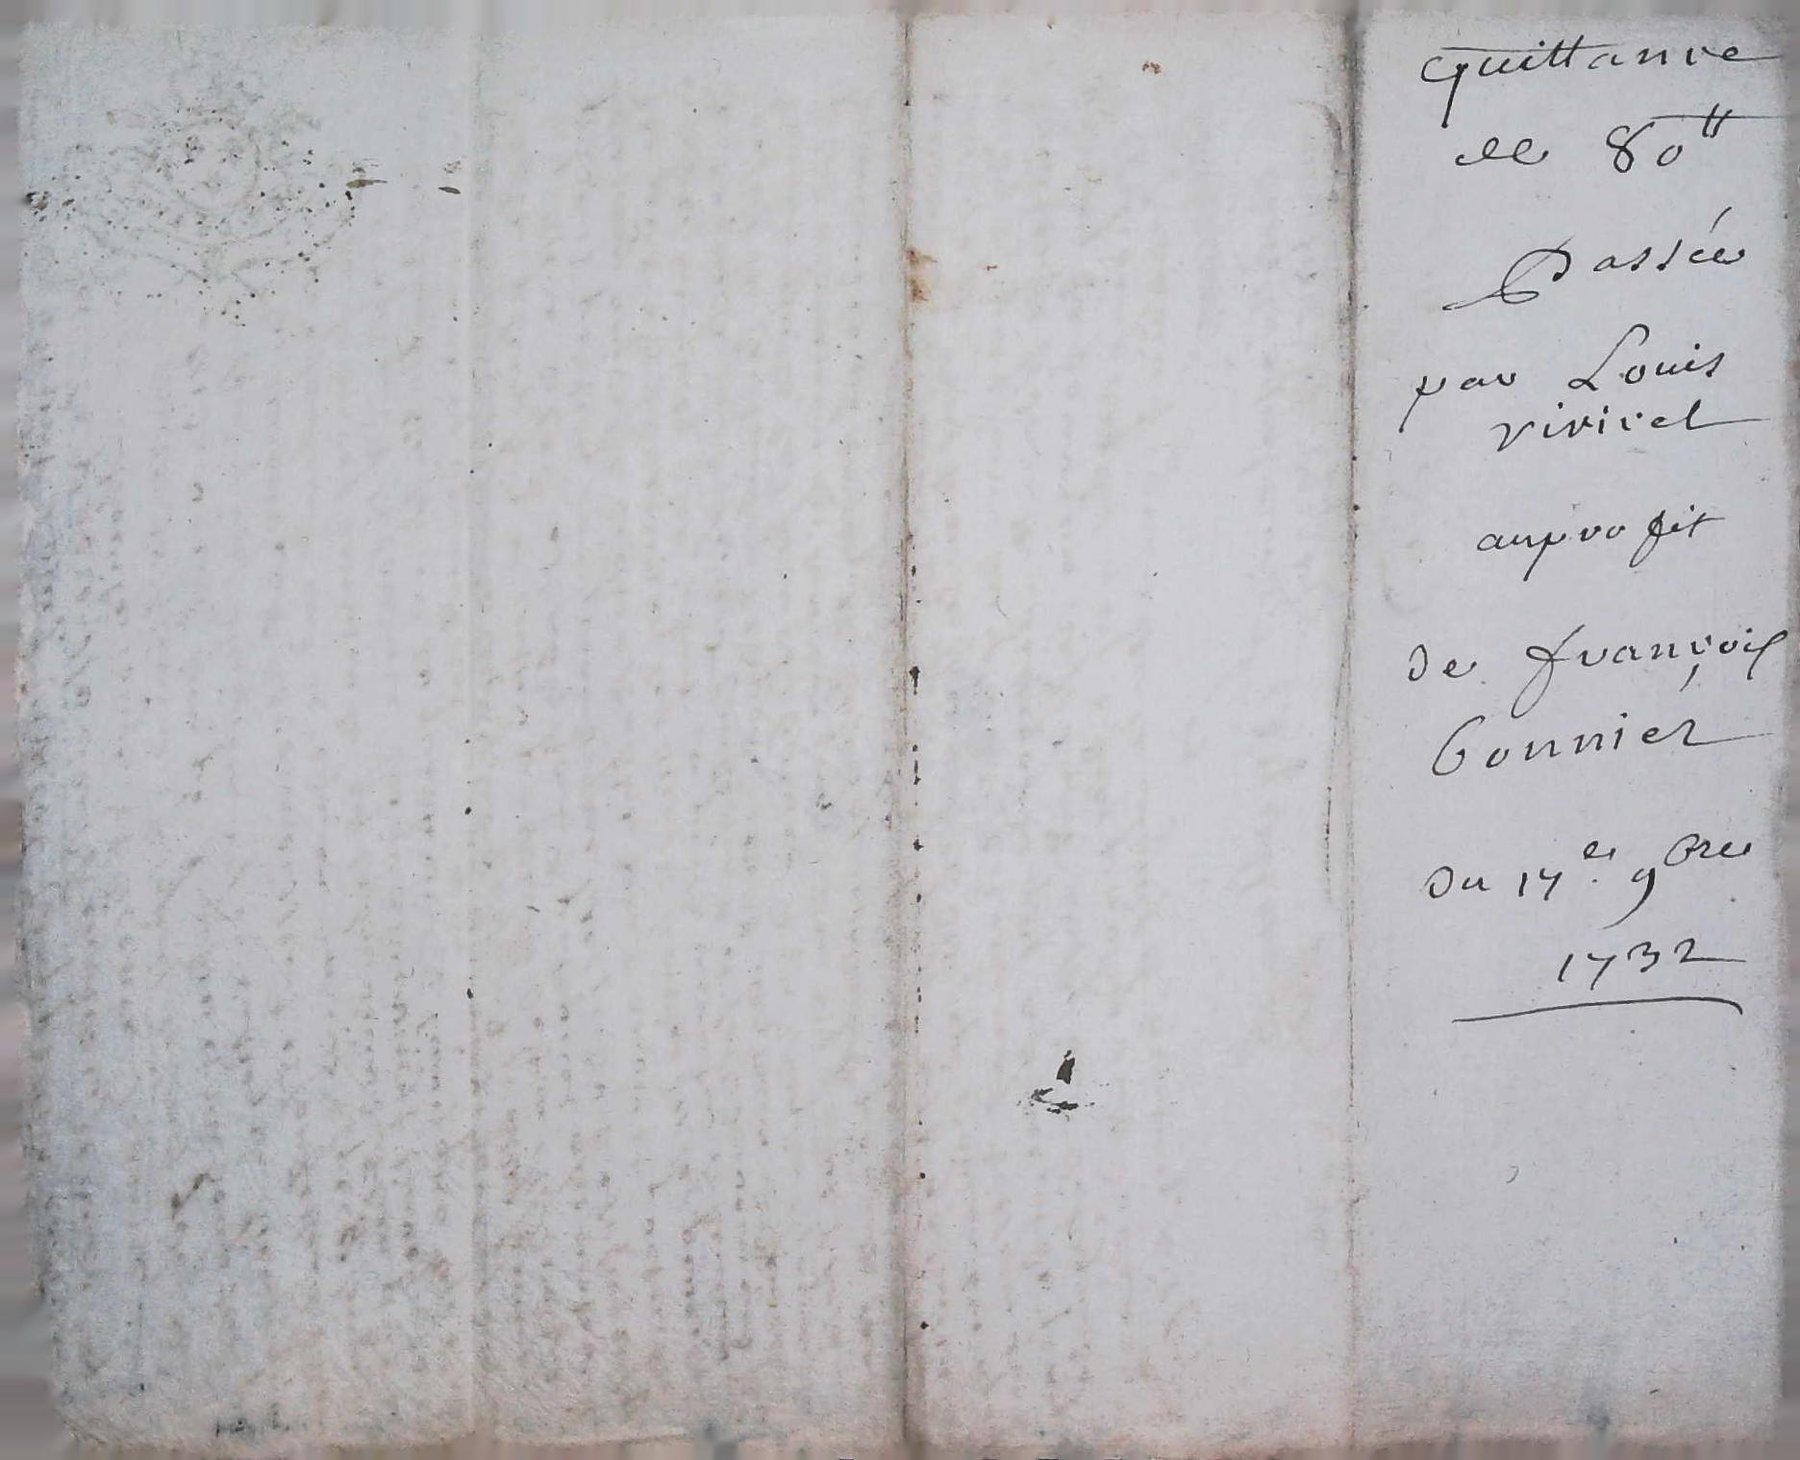 quittance
de 80tt
Passée
par Louis
vivicel
auprofit
de françois
bonnier
du 17e. 9bre
1732